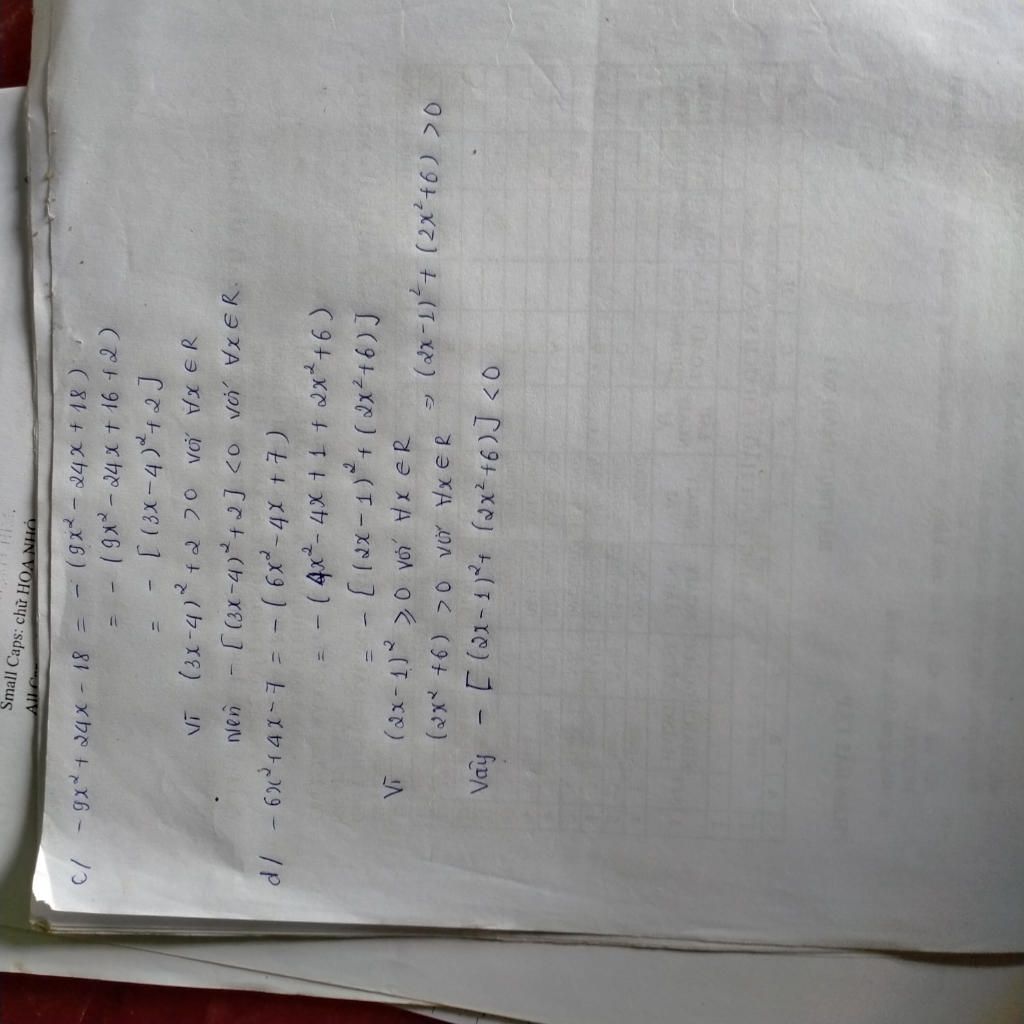 Small Caps: chữ HOA NHỎ
c/ -9x² + 24x - 18 = - (9x² - 24x + 18)
= - (9x² - 24x + 16 + 2)
= - [(3x - 4)² + 2]
Vì (3x - 4)² + 2 > 0 với ∀x ∈ R
nên - [(3x - 4)² + 2] < 0 với ∀x ∈ R.
d/ - 6x² + 4x - 7 = - (6x² - 4x + 7)
= - (4x² - 4x + 1 + 2x² + 6)
= - [(2x - 1)² + (2x² + 6)]
Vì (2x - 1)² ≥ 0 với ∀x ∈ R
(2x² + 6) > 0 với ∀x ∈ R ⇒ (2x - 1)² + (2x² + 6) > 0
Vậy - [(2x - 1)² + (2x² + 6)] < 0